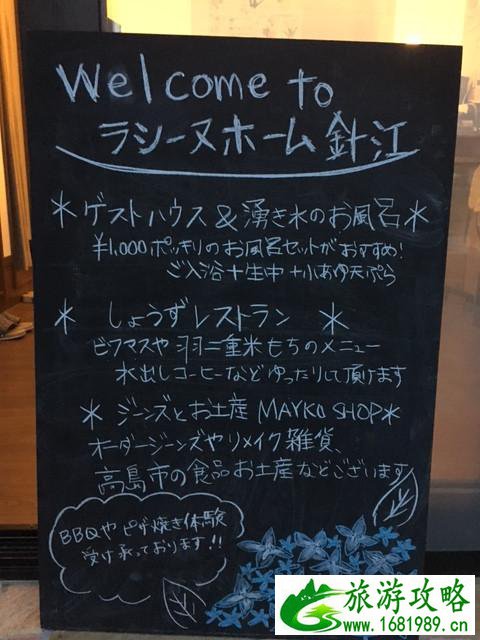 Welcome to
ラシーヌホーム針江
＊ゲストハウス＆湧き水のお風呂＊
¥1,000ポッキリのお風呂セットがおすすめ!
ご入浴＋生中＋小あゆ天ぷら
＊ しょうずレストラン ＊
ビワマスや羽二重米もちのメニュー
水出しコーヒーなどゆったりして頂けます
＊ジーンズとお土産 MAYKO SHOP＊
オーダージーンズやリメイク雑貨、
高島市の食品お土産などございます
BBQやピザ焼き体験
受け承っております!!
旅游攻略
www.1681989.cn